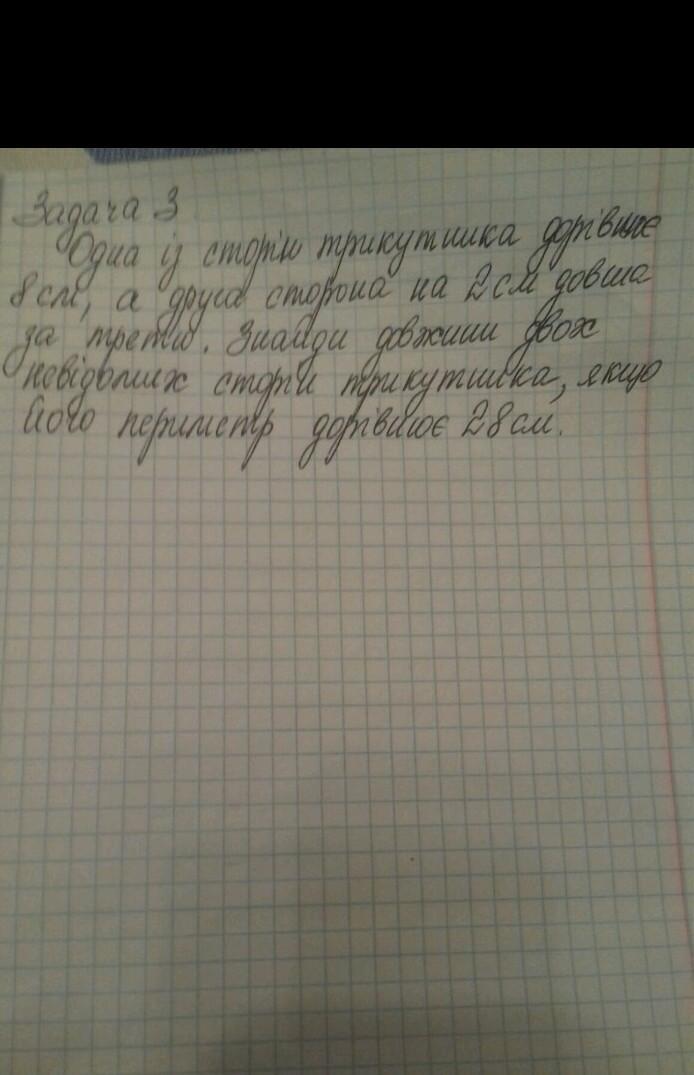 Задача 3
Одна із сторін трикутника дорівнює
8 см, а друга сторона на 2 см довша
за третю. Знайди довжини двох
невідомих сторін трикутника, якщо
його периметр дорівнює 28 см.